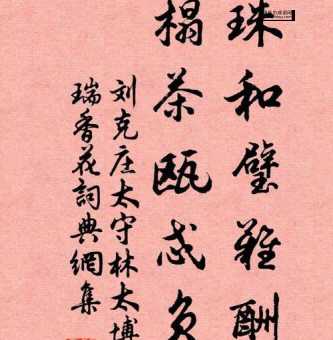 珠和璧难酬
榻茶瓯忒负
刘克庄太守林太博
瑞香花詞典網集